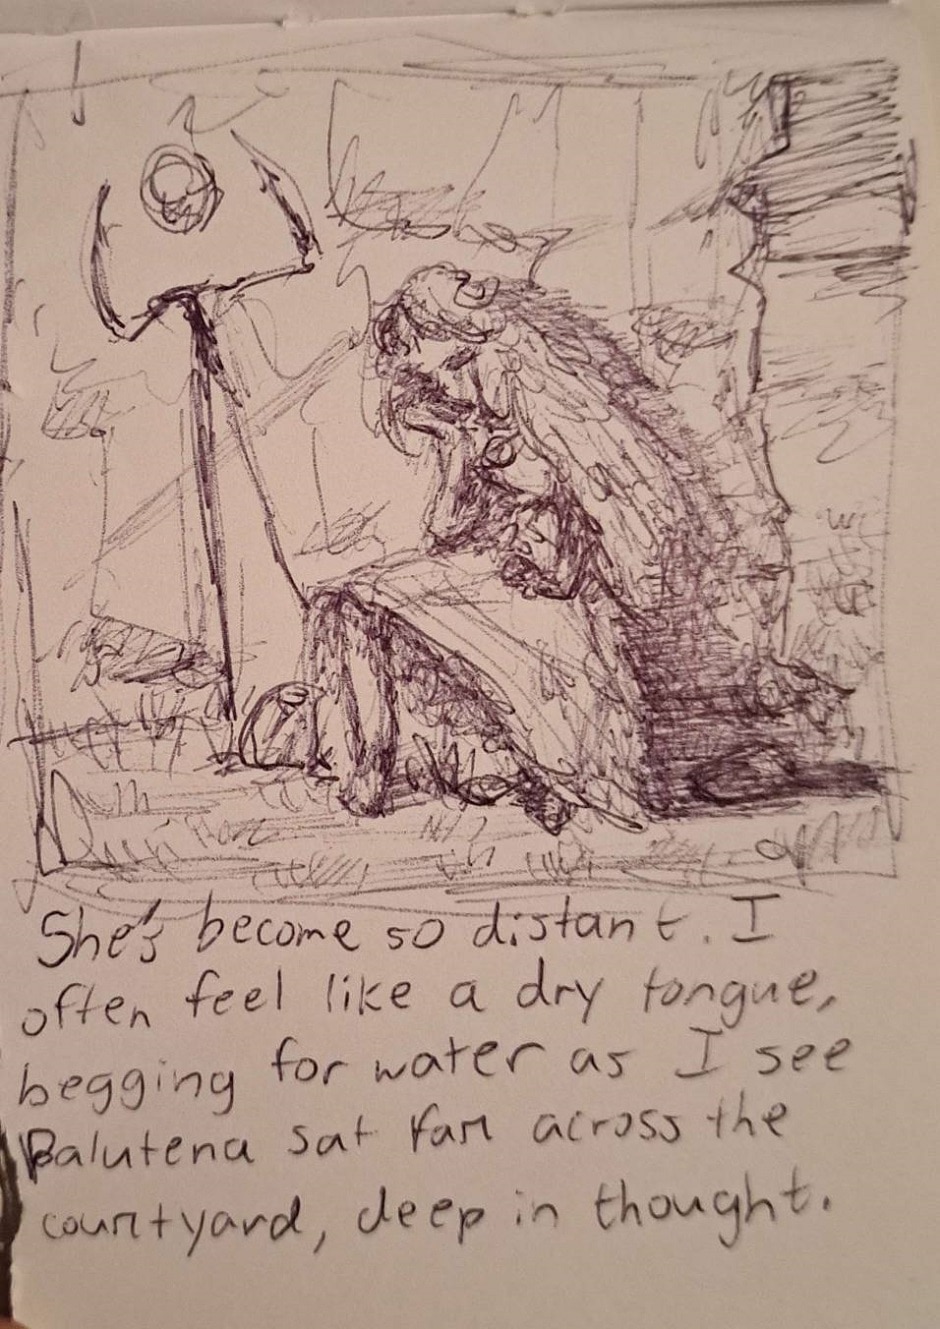 She's become so distant. I
often feel like a dry tongue,
begging for water as I see
Palutena sat far across the
courtyard, deep in thought.